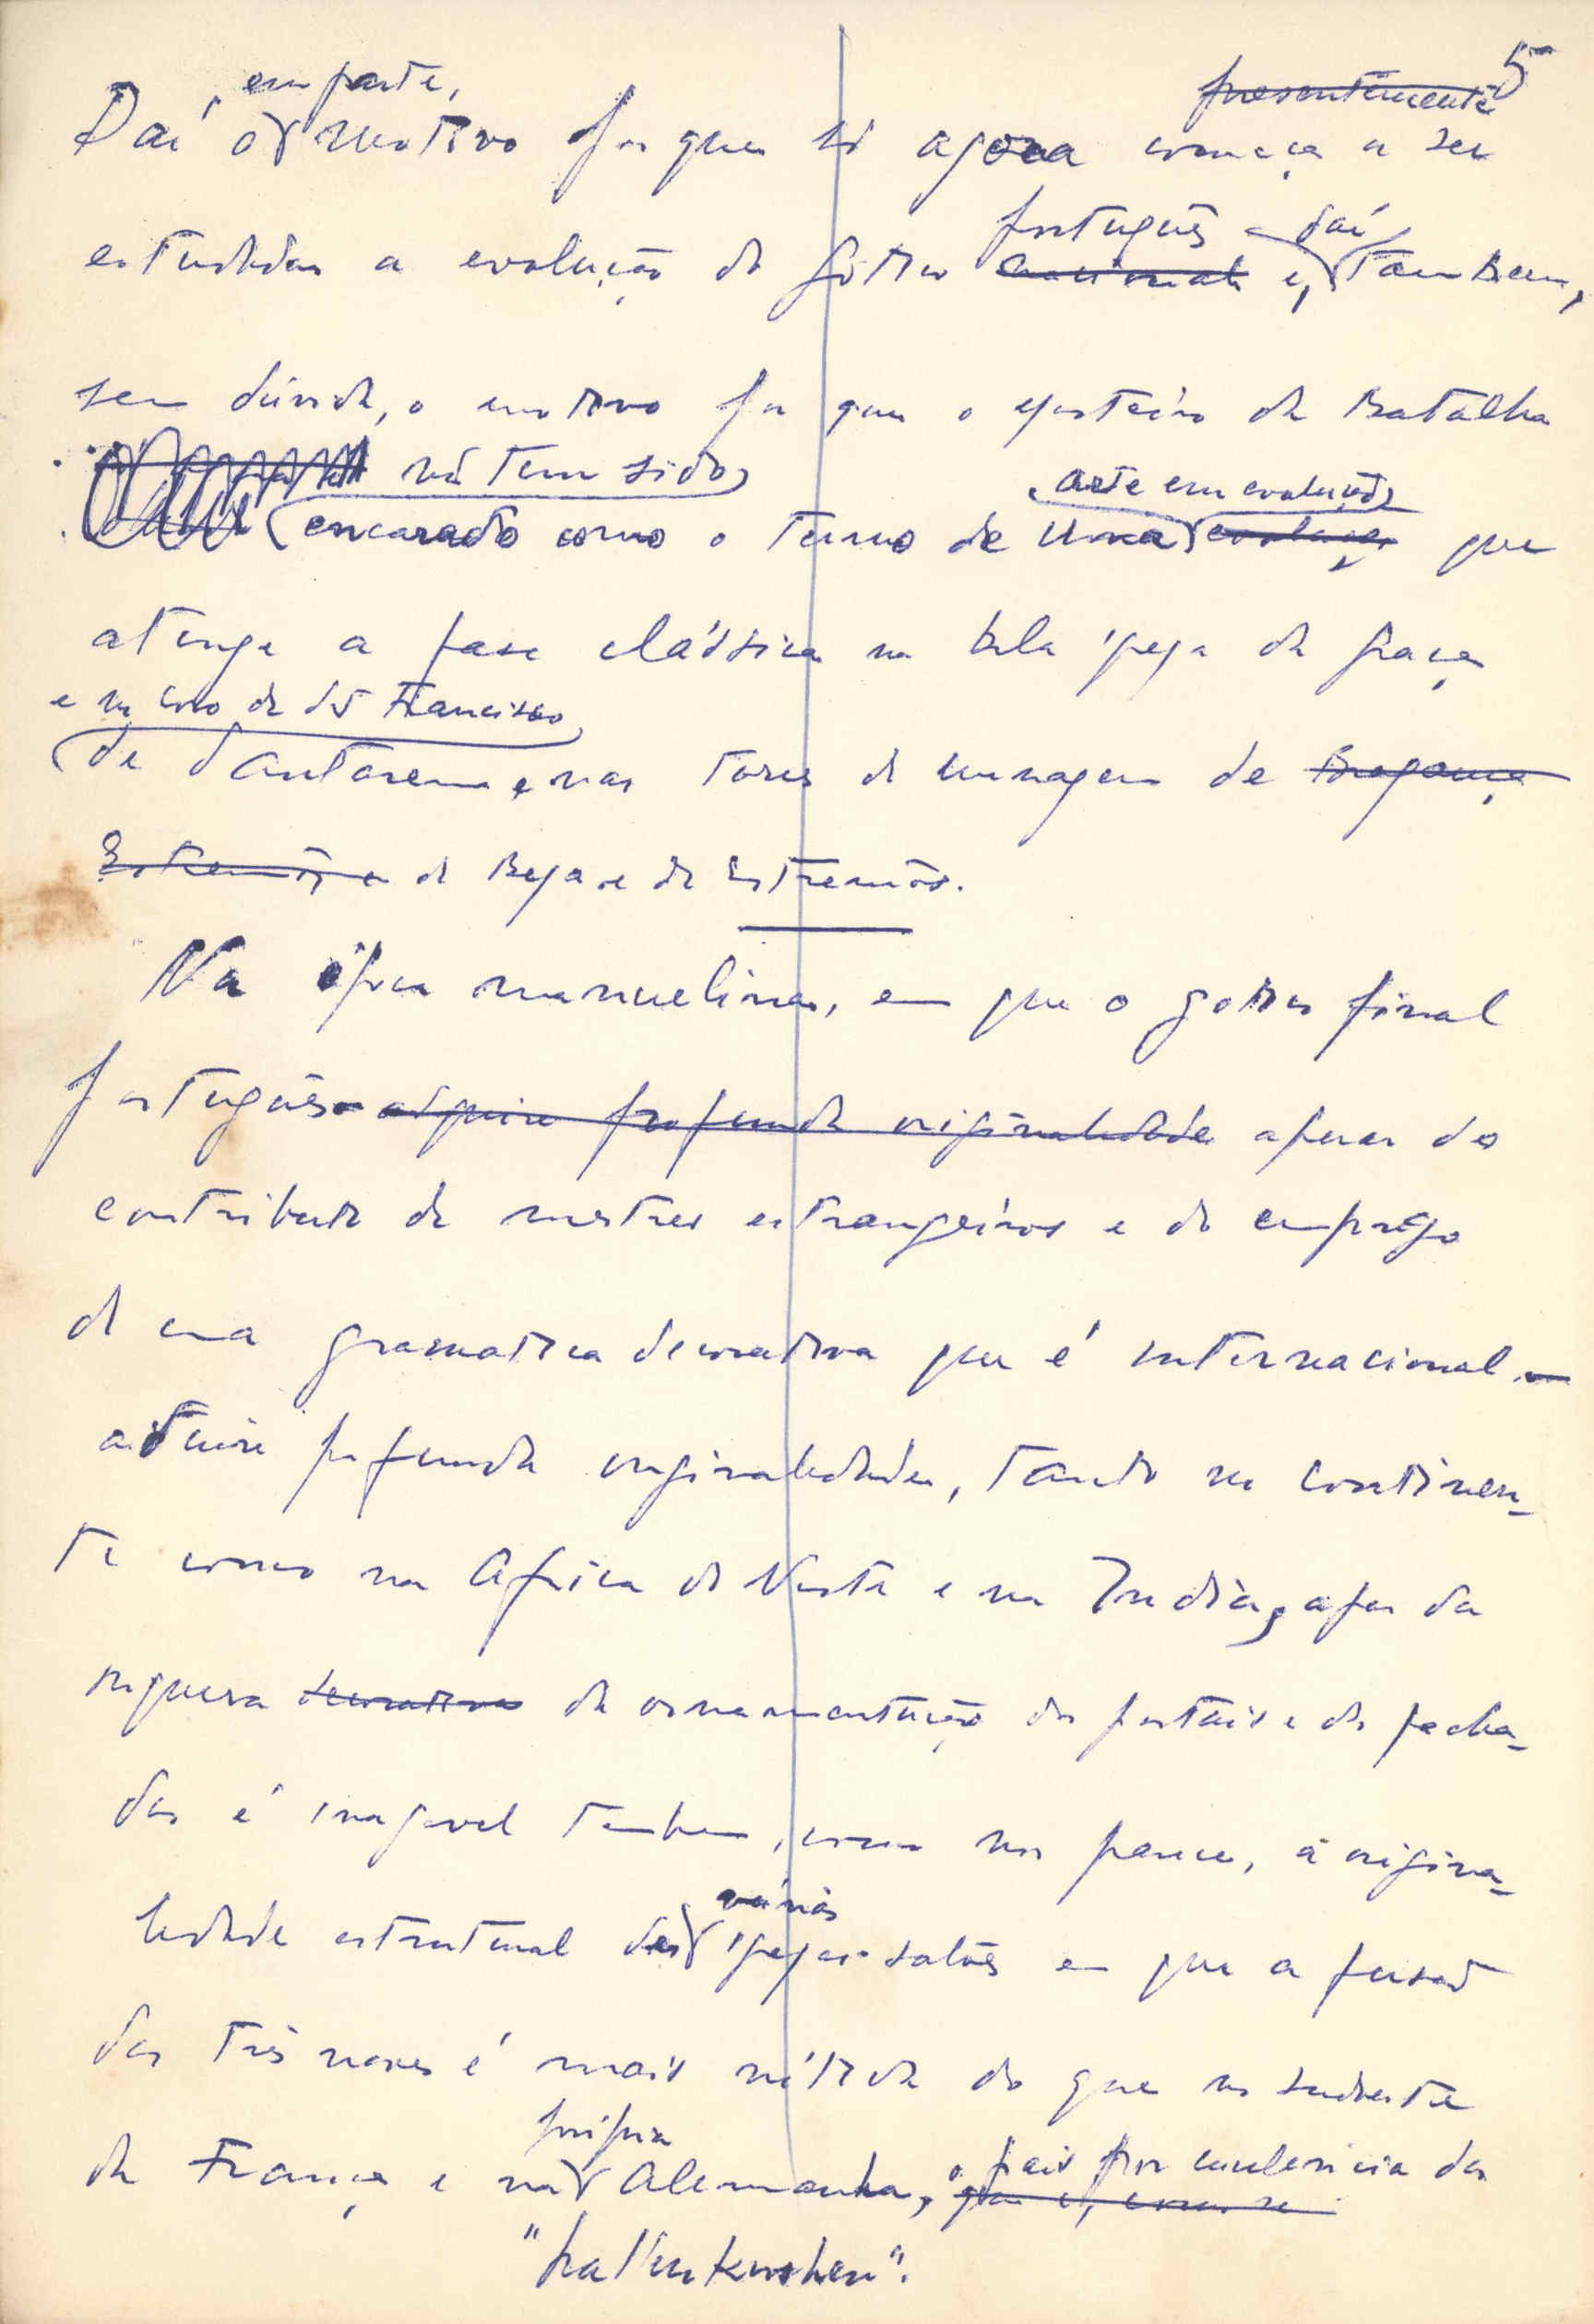 5
em parte, presentemente
Daí o motivo porque só agora começa a ser
português daí
estudada a evolução do gótico nacional e, também,
sem dúvida, o motivo por que o mosteiro da Batalha
não tem sido
arte em evolução
encarado como o termo de uma evolução que
atinge a fase clássica na bela igreja da Graça
e no coro de S. Francisco
de Santarem e nas torres de menagem de Bragança
Estremôs e de Beja e de Estremôs.
Na época manuelina, em que o gotico final
português adquire profunda originalidade apesar do
contributo de mestres estrangeiros e do emprego
de uma gramatica decorativa que é internacional
adquire profunda originalidade, tanto no continen-
te como na Africa do Norte e na India, a par da
riqueza decorativa da ornamentação dos portais e das facha-
das é inegavel tambem, como nos parece, a origina-
várias
lidade estrutural das igrejas-salões em que a fusão
das três naves é mais nítida do que no sudoeste
própria
da França e na Alemanha, o país por excelencia das
que é, como se
"hallenkirchen".